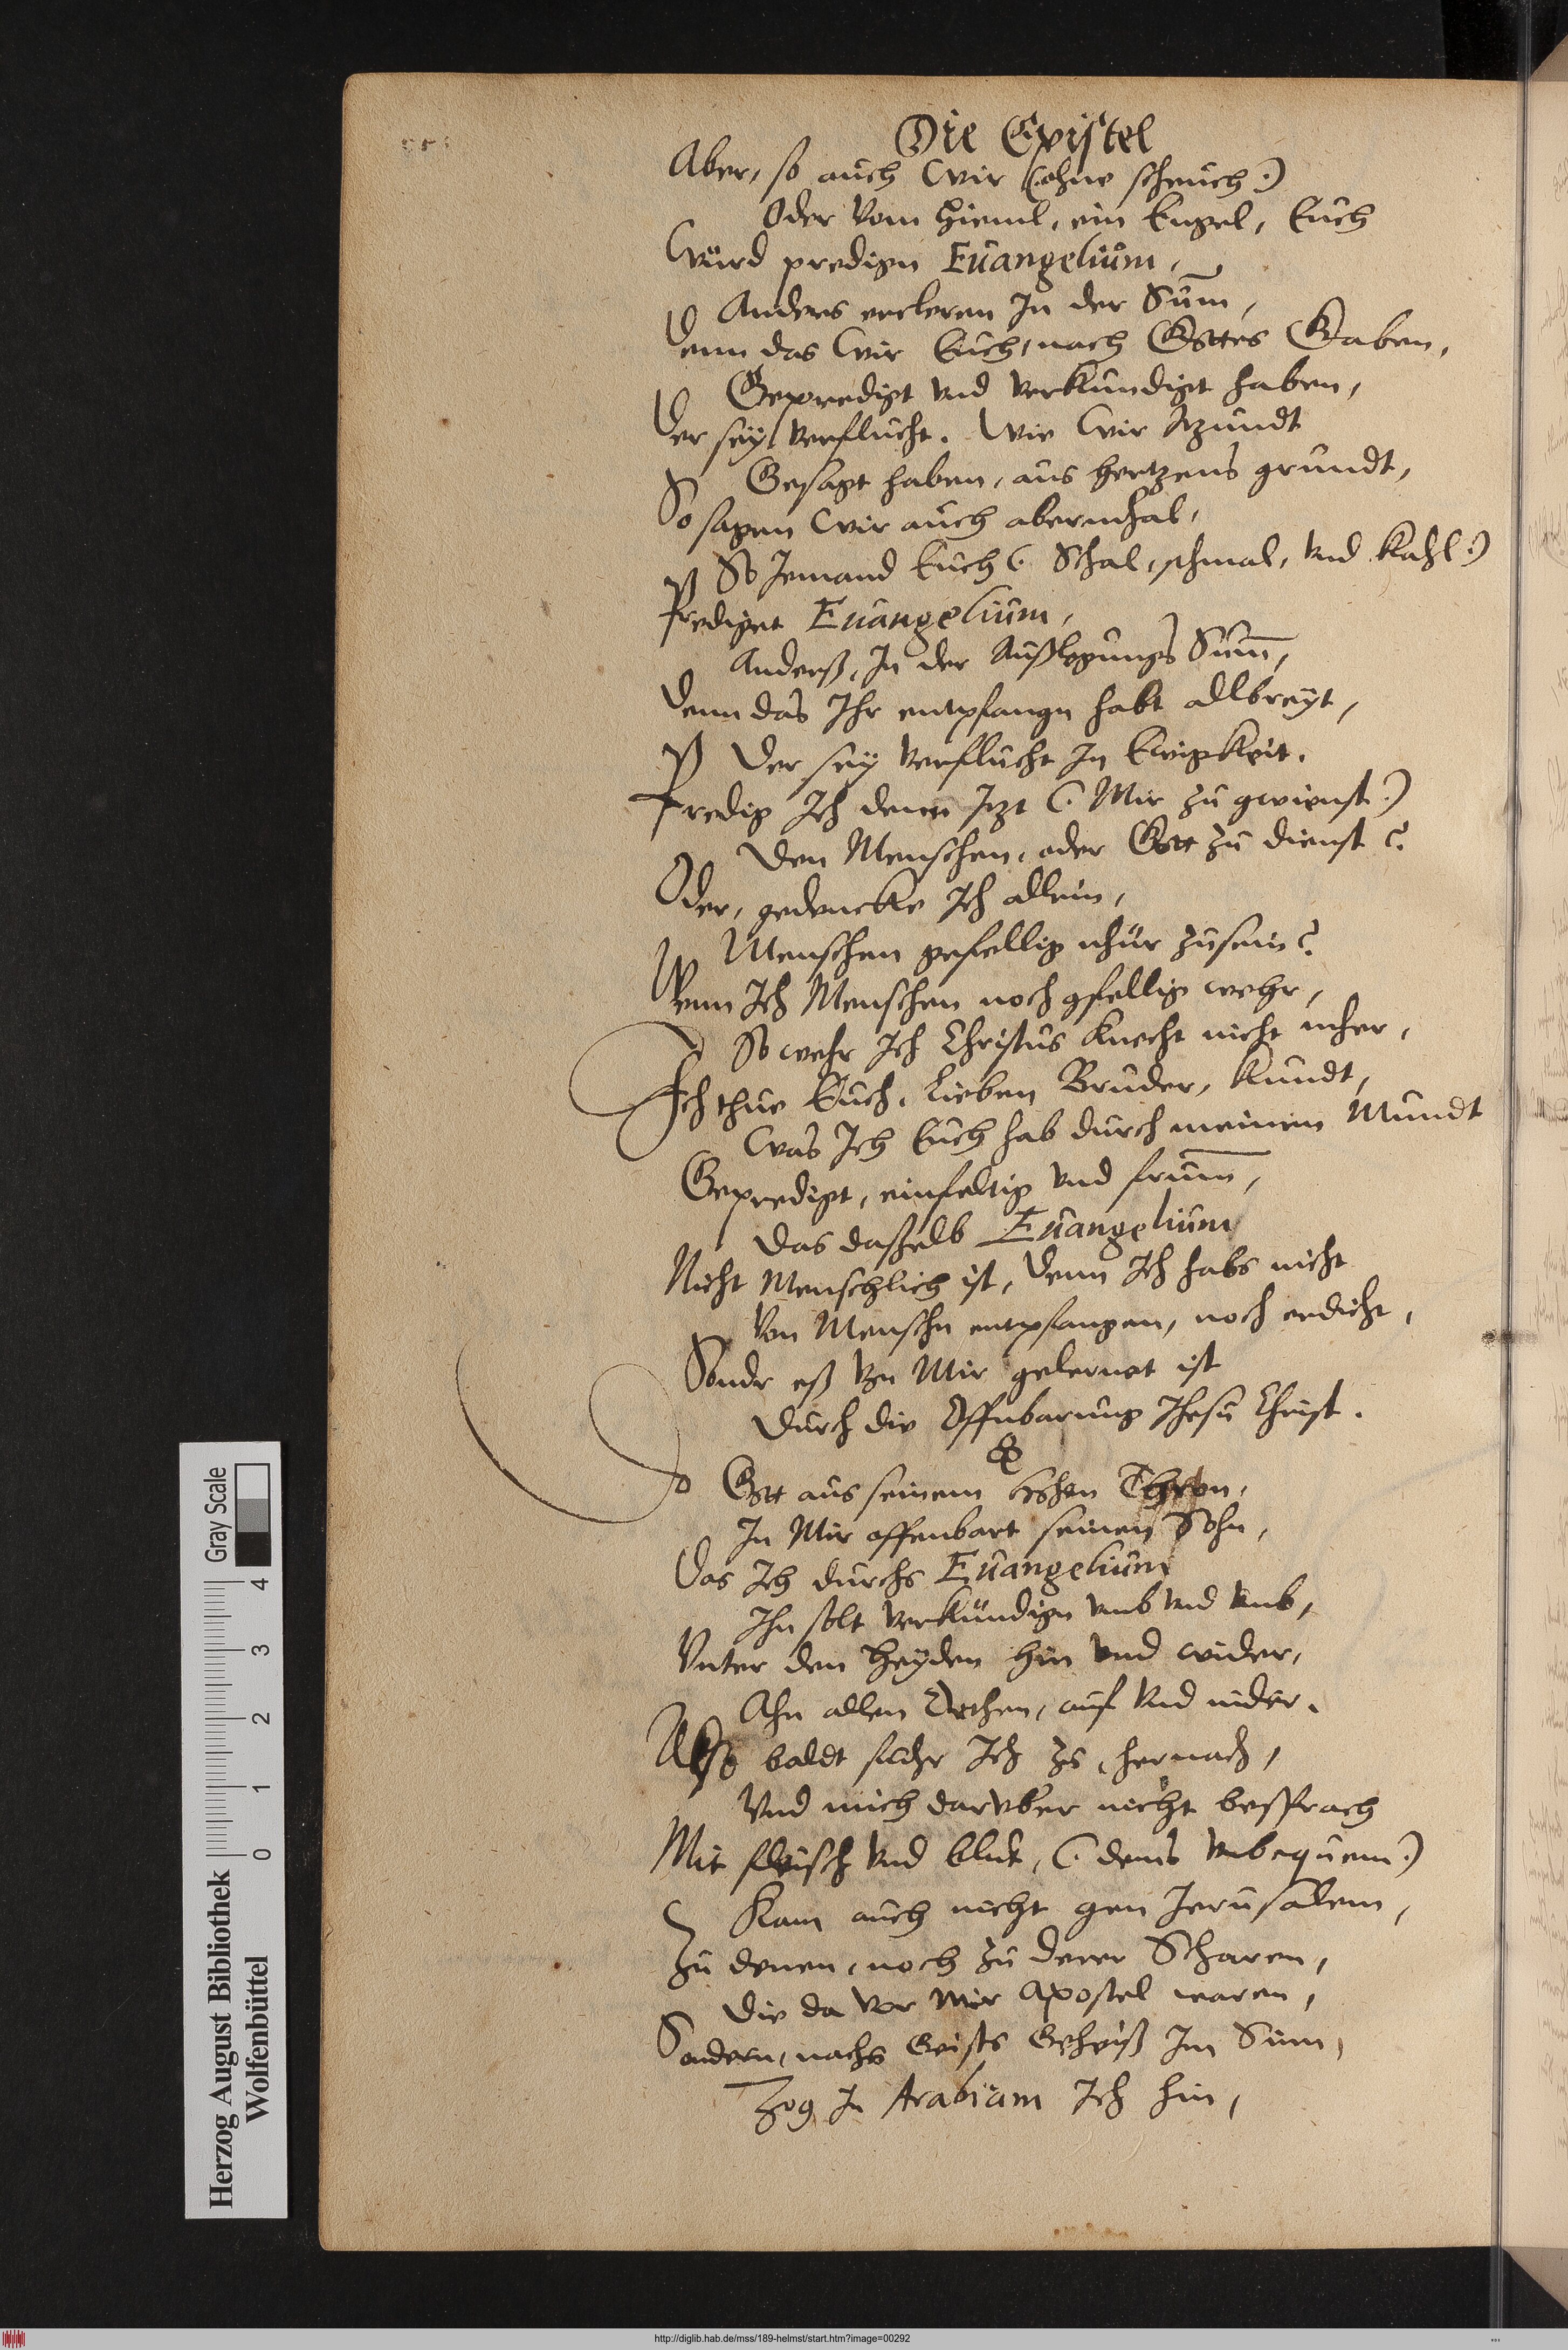 Die Epistel
Aber, so auch Wir (ohne scheuch:)
Oder Vom Hieml, ein Engel, Euch
Würd predign Euangelium,
Anders ercleren In der Sum̅,
Denn das Wir Euch, nach Gottes Gaben,
Gepredigt Vnd Verkundigt haben,
Der sey Verflucht. Wie Wir Itzundt
Gesagt haben, aus hertzens grundt,
So sagen Wir auch abermhal,
So Jemand Euch (: Schal, schmal, Vnd Kahl:)
Prediget Euangelium,
Anderß, In der Außlegungs Sum̅,
Denn das Ihr entpfangn habt allbreyt,
Der sey Verflucht In Ewigkeit.
Predig Ich denn Itzt (: Mir zu gewienst:)
Den Menschen, oder Gott zu dienst?
Oder, gedencke Ich allein,
Menschen gefellig nhür zusein?
Wenn Ich Menschen noch gfellig wehr,
So wehr Ich Christus Knecht nicht mher,
Ich thue Euch, Lieben Bruder, Kundt,
Was Ich Euch hab durch meinen Mundt
Gepredigt, einfeltig Vnd frum̅,
Das daßelb Euangelium
Nicht Menschlich ist, Denn Ich habs nicht
Von Menschn entpfangen, noch erdicht,
Sondr eß Von Mir gelernet ist
Durch die Offnbarung Jhesu Christ.
Gott aus seinem hohen Thron,
In Mir offenbart seinen Sohn,
Das Ich durchs Euangelium
Ihn solt Verkündign vmb Vnd Vmb,
Vnter den Heyden hin Vnd wider,
Ahn allen Orthen, auf Vnd nider.
Also baldt fuhr Ich zu, hernach,
Vnd mich darvber nicht besprach
Mit fleisch Vnd blut, (: dems Vnbequem:)
Kam auch nicht gen Jerusalem,
Zu denen, noch Zu derer Scharen,
Die da Vor Mir Apostel waren,
Sondern, nachs Geists Geheiß Im Sinn,
Zog In Arabiam Ich hin,
Herzog August Bibliothek
Wolfenbüttel
Gray Scale
0 1 2 3 4
http://diglib.hab.de/mss/189-helmst/start.htm?image=00292